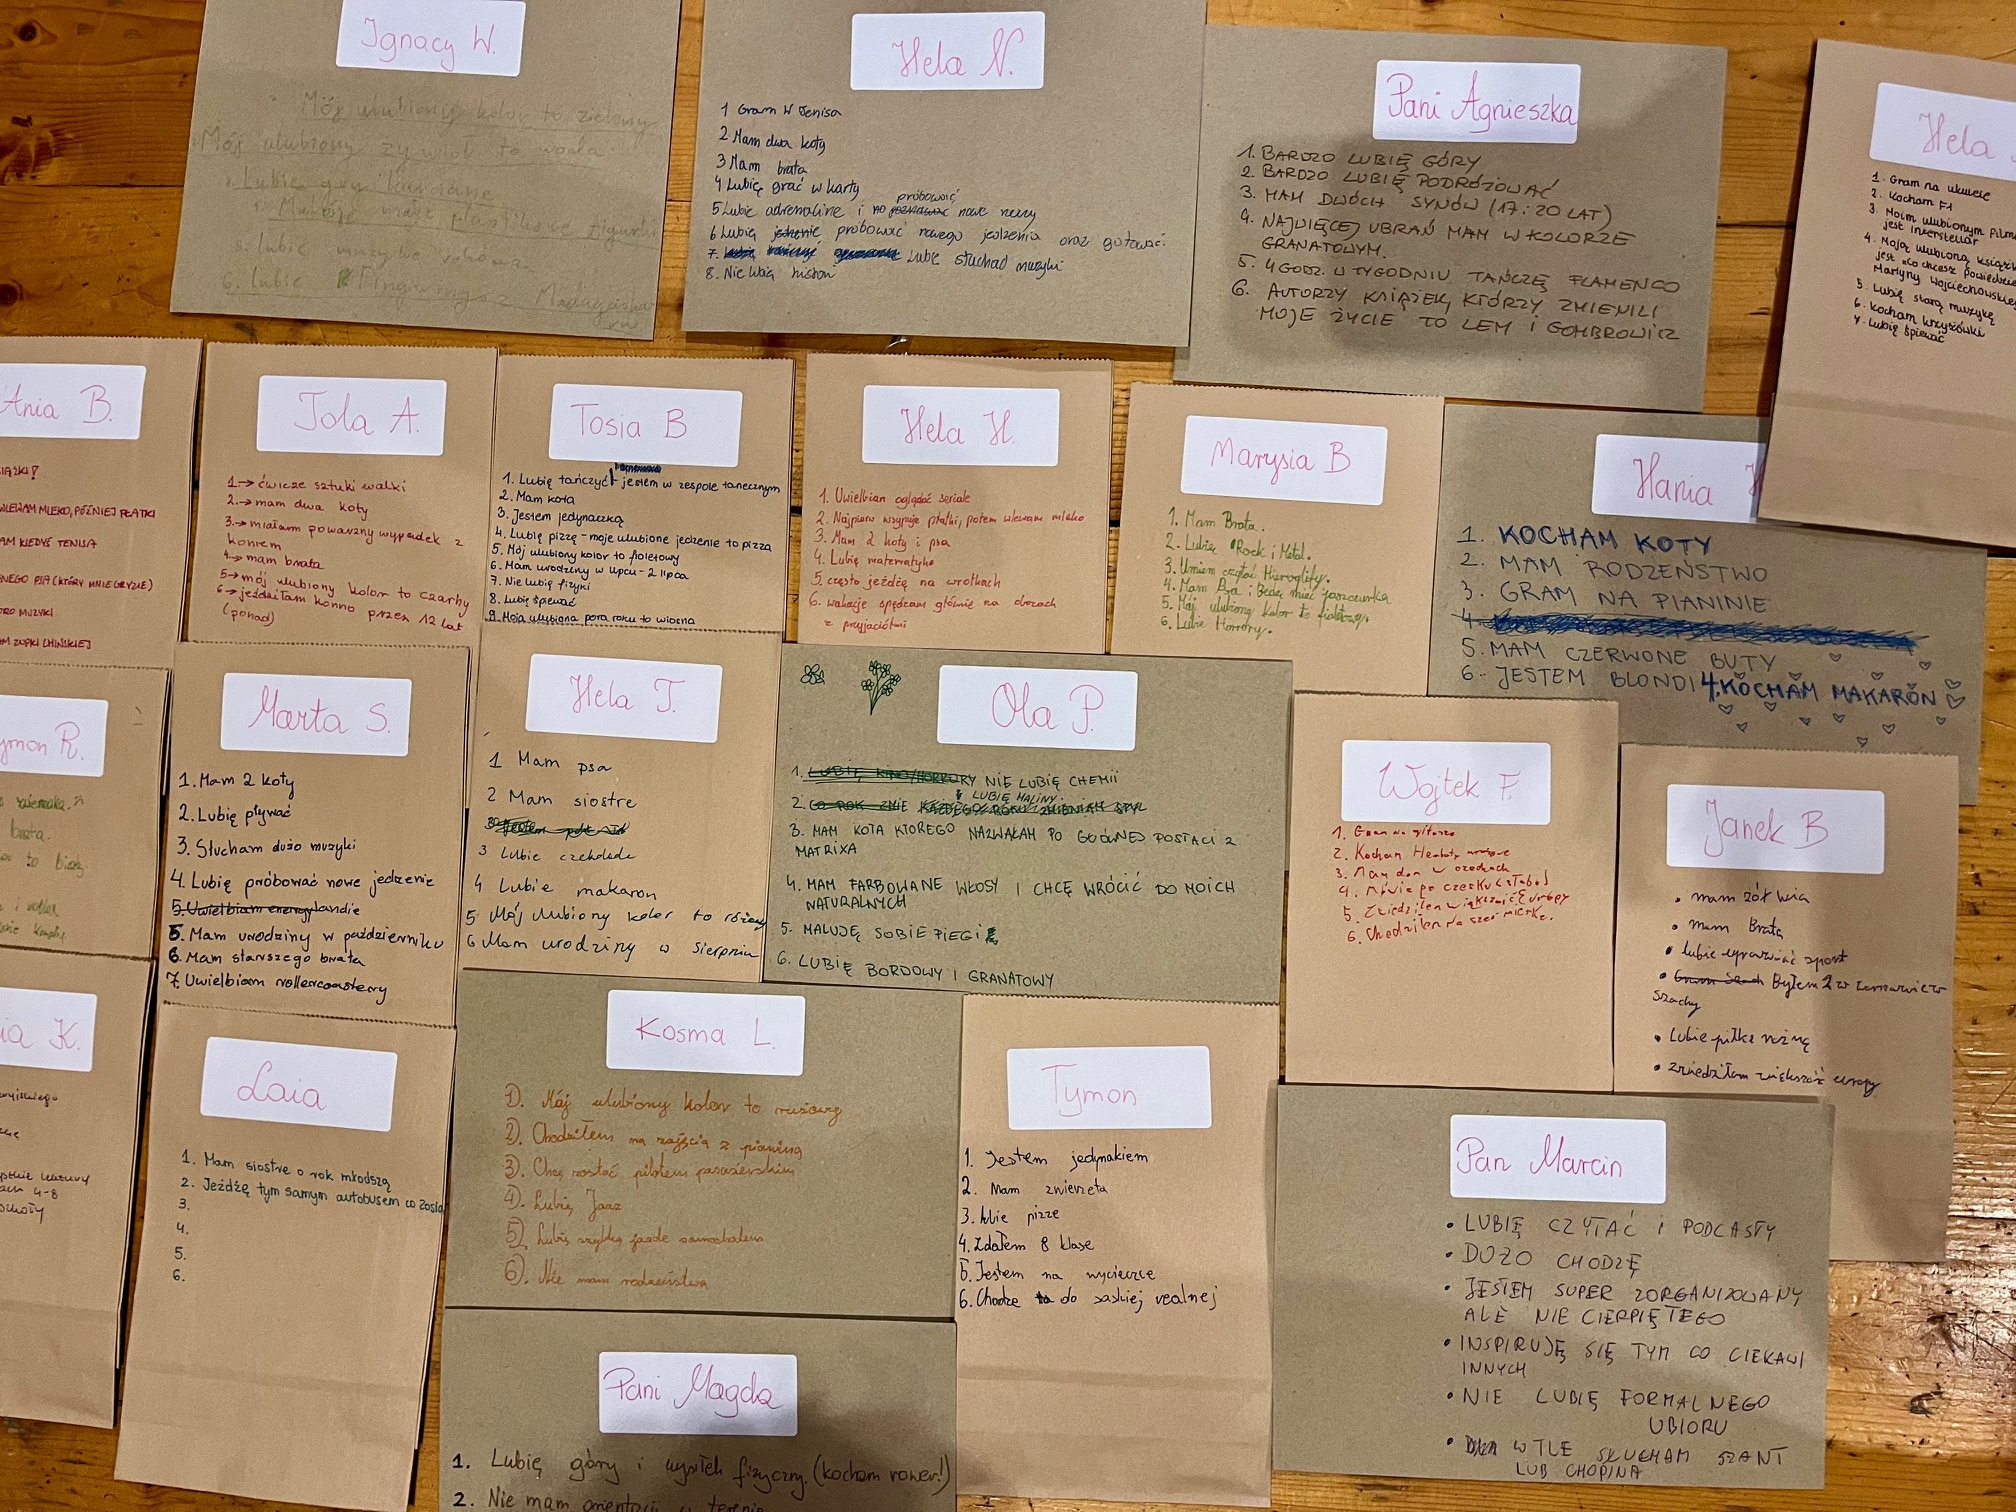 Ignacy W.
Mój ulubiony kolor to zielony
Mój ulubiony żywioł to woda
Lubię gry karciane
Maluję małe plastikowe figurki
Lubię muzykę
6. Lubię Pingwiny z Madagaskaru
Hela N.
1 Gram w Tenisa
2. Mam dwa koty
3 Mam brata
4 Lubię grać w karty
próbować
5 Lubię adrenaline i nowe rzeczy
6 Lubię próbować nowego jedzenia oraz gotować
7. Lubię słuchać muzyki
8. Nie lubię histori
Pani Agnieszka
1. BARDZO LUBIĘ GÓRY
2. BARDZO LUBIĘ PODRÓŻOWAĆ
3. MAM DWÓCH SYNÓW (17 i 20 LAT)
4. NAJWIĘCEJ UBRAŃ MAM W KOLORZE
GRANATOWYM.
5. 4 GODZ. W TYGODNIU TAŃCZĘ FLAMENCO
6. AUTORZY KSIĄŻEK, KTÓRZY ZMIENILI
MOJE ŻYCIE TO LEM I GOMBROWICZ
Hela
1. Gram na ukulele
2. Kocham F1
3. Moim ulubionym filme
jest Interstellar
4. Moją ulubioną książk
jest "Co chcesz powiedzie
Martyny Wojciechowskie
5. Lubię starą muzykę
6. Kocham krzyżówki
7. Lubię śpiewać
Ania B.
IĄŻKI!
WLEWAM MLEKO, PÓŹNIEJ PŁATKI
AM KIEDYŚ TENISA
NEGO PSA (KTÓRY MNIE GRYZIE)
ORO MUZYKI
AM ZUPKI CHIŃSKIEJ
Jola A.
1.→ ćwicze sztuki walki
2.→ mam dwa koty
3.→ miałam poważny wypadek z
koniem
4→ mam brata
5→ mój ulubiony kolor to czarny
6→ jeździłam konno przez 12 lat
(ponad)
Tosia B
1. Lubię tańczyć jestem w zespole tanecznym
2. Mam kota
3. Jestem jedynaczką
4. Lubię pizzę - moje ulubione jedzenie to pizza
5. Mój ulubiony kolor to fioletowy
6. Mam urodziny w lipcu - 2 lipca
7. Nie lubię fizyki
8. Lubię śpiewać
9. Moja ulubiona pora roku to wiosna
Hela H.
1. Uwielbiam oglądać seriale
2. Najpierw wsypuje płatki, potem wlewam mleko
3. Mam 2 koty i psa
4. Lubię matematykę
5. często jeżdżę na wrotkach
6. wakacje spędzam głównie na obozach
z przyjaciółmi
Marysia B
1. Mam Brata.
2. Lubię Rock i Metal.
3. Umiem czytać Hieroglify.
4. Mam Psa i Będę mieć jaszczurka
5. Mój ulubiony kolor to fioletowy.
6. Lubie Horrory.
Hania
1. KOCHAM KOTY
2. MAM RODZEŃSTWO
3. GRAM NA PIANINIE
4.
5. MAM CZERWONE BUTY
6. JESTEM BLONDI 4. KOCHAM MAKARON
ymon R.
brata.
Marta S.
1. Mam 2 koty
2. Lubię pływać
3. Słucham dużo muzyki
4. Lubię próbować nowe jedzenie
5. Uwielbiam energylandie
5. Mam urodziny w październiku
6. Mam starszego brata
7. Uwielbiam rollercoastery
Hela T.
1 Mam psa
2 Mam siostre
3 Lubie czekolade
4 Lubie makaron
5 Mój ulubiony kolor to różowy
6 Mam urodziny w sierpniu
Ola P.
1. LUBIĘ KINO/HORRORY NIE LUBIĘ CHEMII
LUBIĘ MALINY
2. CO ROK ZMIE KAŻDEGO ROKU ZMIENIAM STYL
3. MAM KOTA KTOREGO NAZWAŁAM PO GŁÓWNEJ POSTACI Z
MATRIXA
4. MAM FARBOWANE WŁOSY I CHCĘ WRÓCIĆ DO MOICH
NATURALNYCH
5. MALUJĘ SOBIE PIEGI
6. LUBIĘ BORDOWY I GRANATOWY
Wojtek F.
1. Gram na gitarze
2. Kocham Herbatę
3. Mam dom w
4. Mówię po czesku (słabo)
5. Zwiedziłem większość Europy
6. Chodziłem na szermierkę.
Janek B
• mam żółwia
• mam Brata
• lubie uprawiać sport
• Byłem 2 w warszawie w
szachy
• Lubie piłke nożną
• zwiedziłam większość europy
ia K.
4-8
szkoły
Laia
1. Mam siostre o rok młodszą
2. Jeżdżę tym samym autobusem co Zosia
3.
4.
5.
6.
Kosma L.
1). Mój ulubiony kolor to różowy
2). Chodziłem na zajęcia z pianina
3). Chcę zostać pilotem pasażerskim
4). Lubię Jazz
5). Lubię szybką jazdę samochodem
6). Nie mam rodzeństwa
Tymon
1. Jestem jedynakiem
2. Mam zwierzeta
3. lubie pizze
4. Zdałem 8 klase
5. Jestem na wycieczce
6. Chodze do saskiej realnej
Pan Marcin
• LUBIĘ CZYTAĆ I PODCASTY
• DUŻO CHODZĘ
• JESTEM SUPER ZORGANIZOWANY
ALE NIE CIERPIĘ TEGO
• INSPIRUJĘ SIĘ TYM CO CIEKAWI
INNYCH
• NIE LUBIĘ FORMALNEGO
UBIORU
• W TLE SŁUCHAM SZANT
LUB CHOPINA
Pani Magda
1. Lubię góry i wysiłek fizyczny. (kocham rower!)
2. Nie mam orientacji w terenie